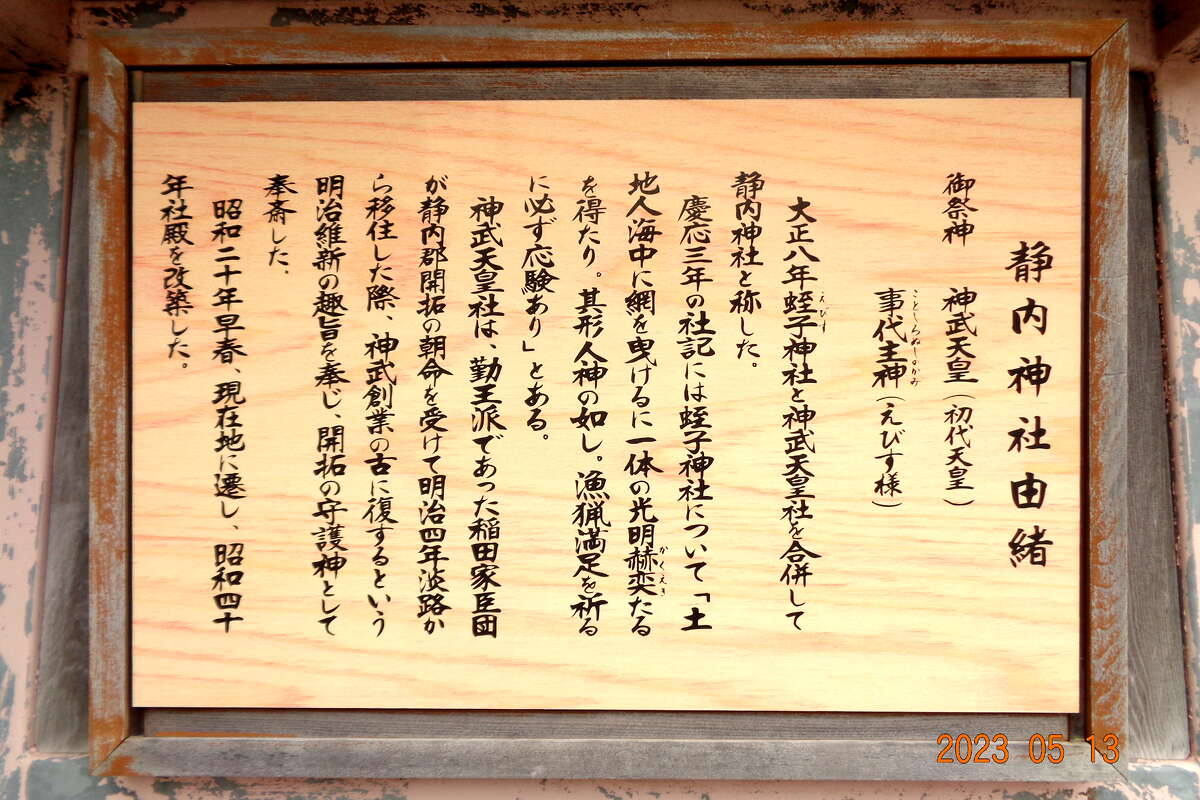 静内神社由緒
御祭神　神武天皇（初代天皇）
ことしろぬしのかみ
事代主神（えびす様）
えびす
大正八年蛭子神社と神武天皇社を合併して
静内神社と称した。
慶応三年の社記には蛭子神社について「土
地人海中に網を曳げるに一体の光明赫奕たる
かくえき
を得たり。其形人神の如し。漁猟満足を祈る
に必ず応験あり」とある。
神武天皇社は、勤王派であった稲田家臣団
が静内郡開拓の朝命を受けて明治四年淡路か
ら移住した際、神武創業の古に復するという
明治維新の趣旨を奉じ、開拓の守護神として
奉斎した、
昭和二十年早春、現在地に遷し、昭和四十
年社殿を改築した。
2023 05 13